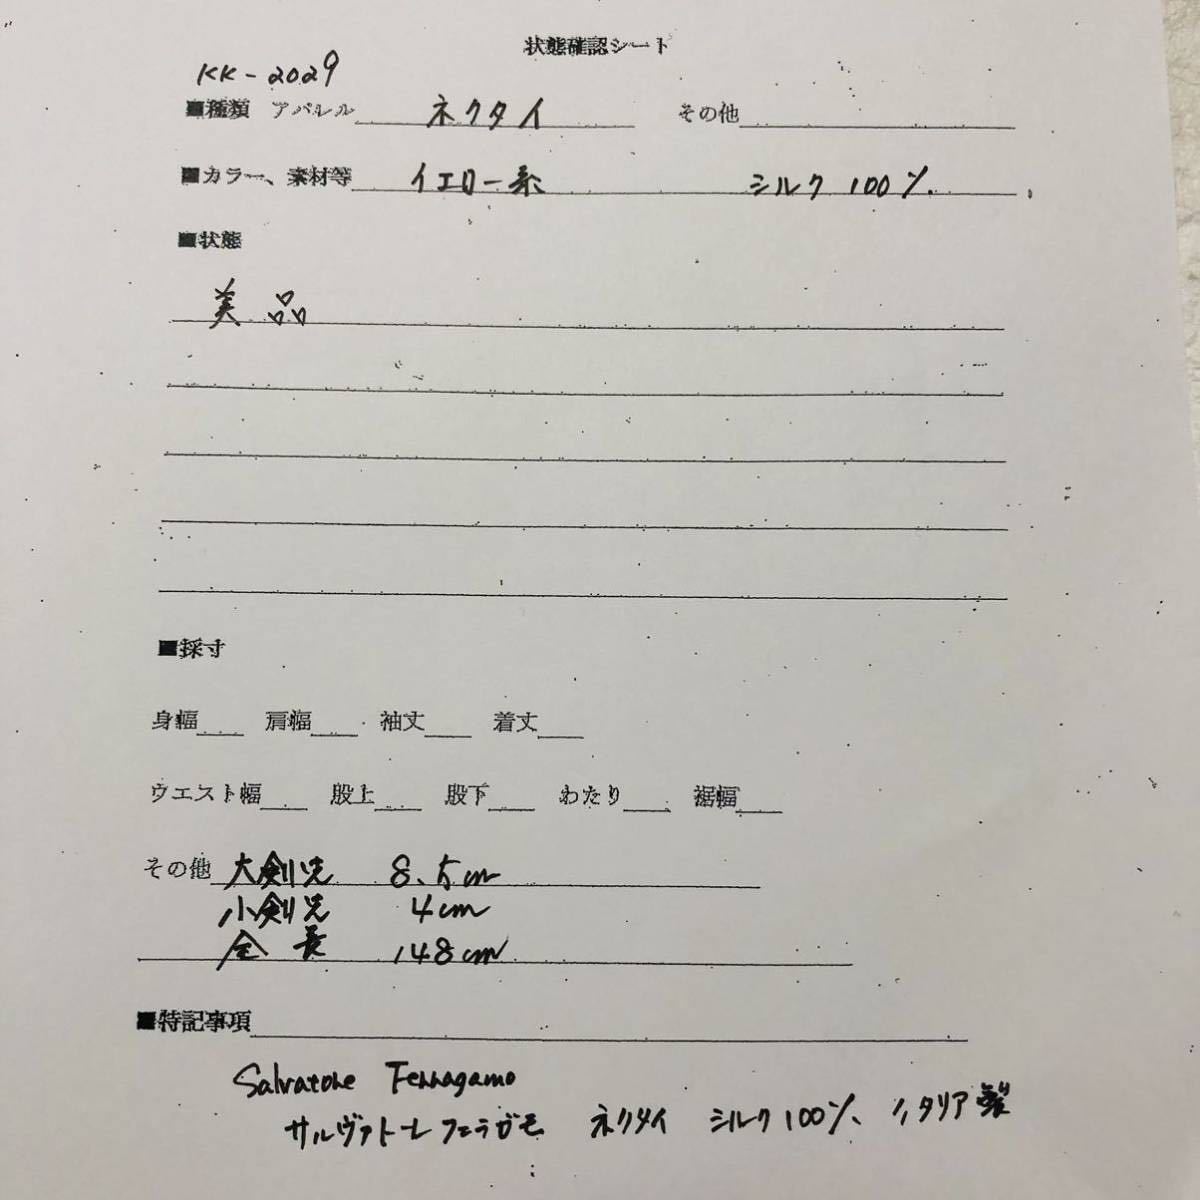 状態確認シート
KK-2029
■種類 アパレル ネクタイ その他
■カラー、素材等 イエロー系 シルク 100%
■状態
美品
■採寸
身幅 肩幅 袖丈 着丈
ウエスト幅 股上 股下 わたり 裾幅
その他 大剣先 8.5cm
小剣先 4cm
全長 148cm
■特記事項
Salvatore Ferragamo
サルヴァトーレフェラガモ ネクタイ シルク100% イタリア製